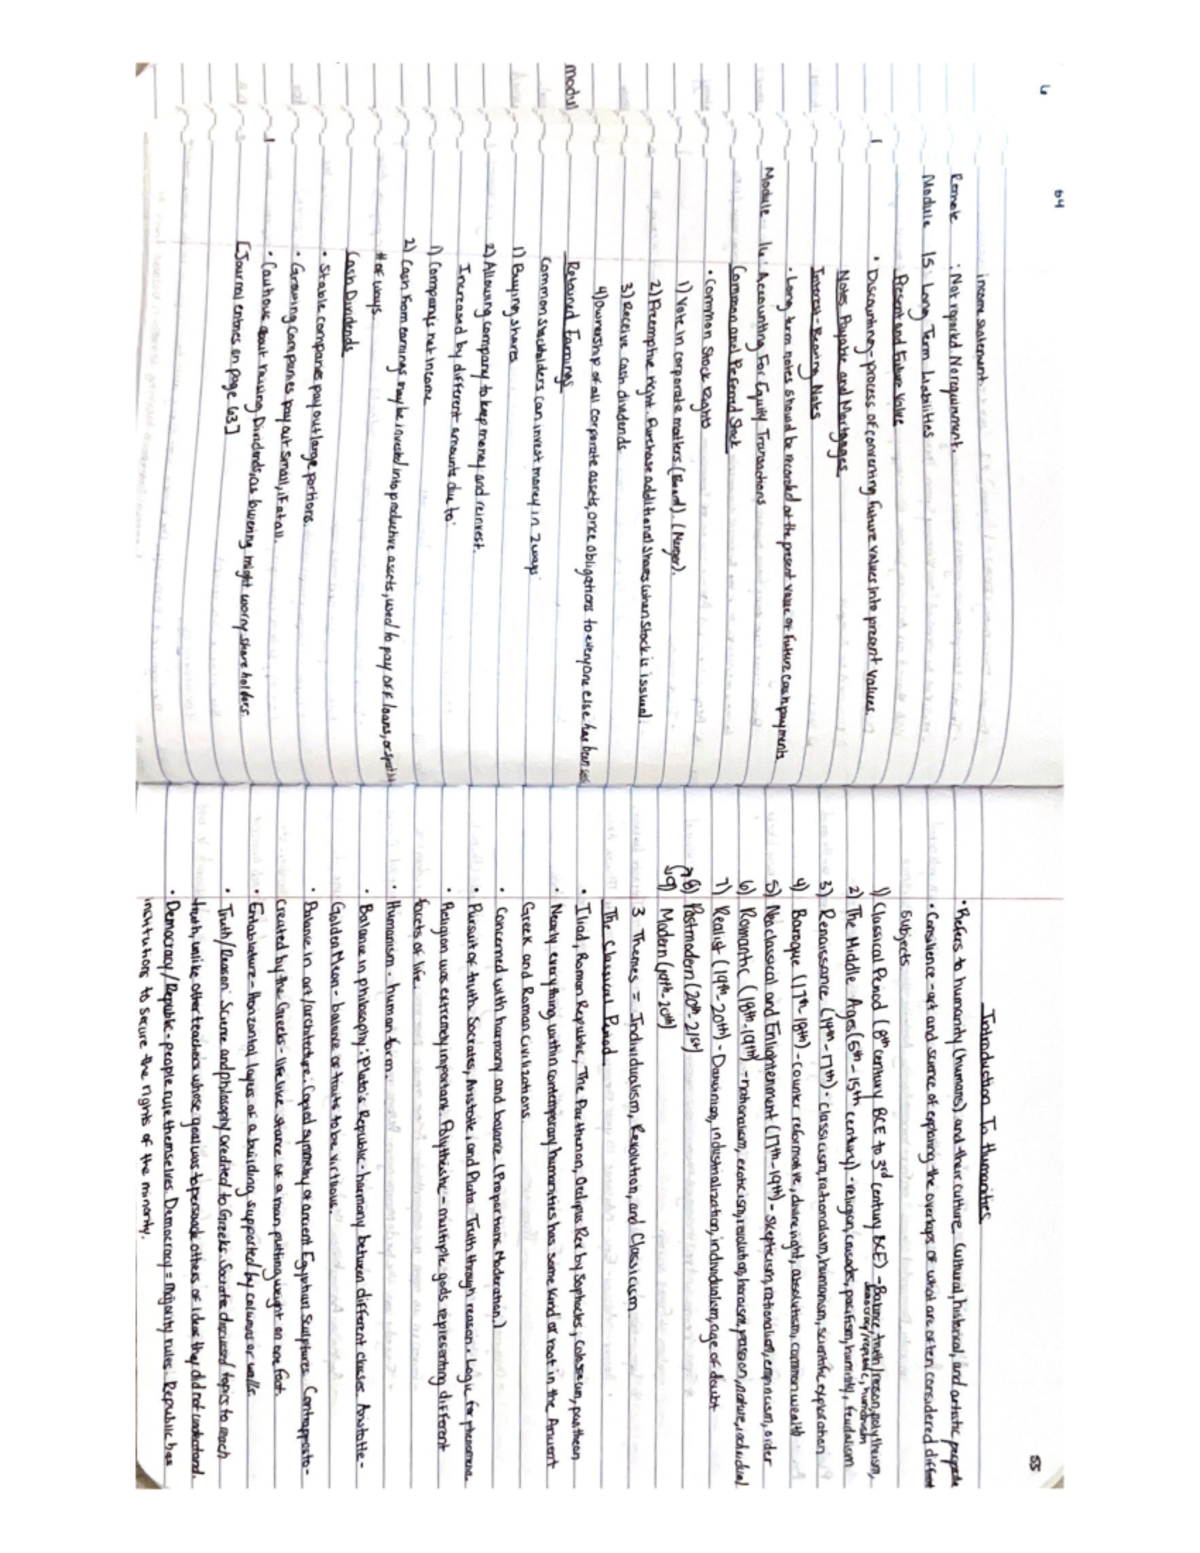 64
income statement.
Remote : Not report. No requirement.
Module 15: Long Term Liabilities
Present and Future Value
• Discounting - process of converting future values into present values.
Notes Payable and Mortgages
Interest-Bearing Notes
• Long term notes should be recorded at the present value of future cash payments
Module 16: Accounting For Equity Transactions
Common and Preferred Stock
• Common Stock Rights
1) Vote in corporate matters. (Board). (Merger).
2) Preemptive right. Purchase additional shares when stock is issued.
3) Receive cash dividends
4) Ownership of all corporate assets, once obligations to everyone else has been
Retained Earnings
Common stockholders can invest money in 2 ways:
1) Buying shares
2) Allowing company to keep money and reinvest.
Increased by different amounts due to:
1) Company's net income
2) Cash from earnings may be invested into productive assets, used to pay off loans, or
# of ways.
Cash Dividends
• Stable companies pay out large portions.
• Growing Companies pay out small, if at all.
• Cautious about raising Dividends, as lowering might worry shareholders.
[Journal entries on page 63]
modul
55
Introduction To Humanities
• Refers to humanity (humans) and their culture (cultural, historical, and artistic
• Consilience - art and science of exploring the overlaps of what are often considered different
subjects
1) Classical Period (8th century BCE to 3rd century BCE) - Balance, truth/reason, polytheism,
democracy/republic, humanism
2) The Middle Ages (5th - 15th century) - religion, crusades, pacifism, humility, feudalism
3) Renaissance (14th - 17th) - classicism, rationalism, humanism, scientific exploration
4) Baroque (17th - 18th) - counter reformative, divine right, absolutism, common wealth
5) Neoclassical and Enlightenment (17th - 19th) - skepticism, rationalism, empiricism, order
6) Romantic (18th - 19th) - nationalism, exoticism, revolution, heroism, passion, nature, individual
7) Realist (19th - 20th) - Darwinian, industrialization, individualism, age of doubt
8) Postmodern (20th - 21st)
9) Modern (19th - 20th)
3 Themes = Individualism, Revolution, and Classicism
The Classical Period
• Iliad, Roman Republic, The Parthenon, Oedipus Rex by Sophocles, Colosseum, pantheon
• Nearly everything within contemporary humanities has some kind of root in the Ancient
Greek and Roman civilizations.
• Concerned with harmony and balance. (Proportions. Moderation.)
• Pursuit of truth. Socrates, Aristotle, and Plato. Truth through reason. Logic for phenomena.
• Religion was extremely important. Polytheistic - multiple gods representing different
facets of life.
• Humanism - human form.
• Balance in philosophy. Plato's Republic - harmony between different classes. Aristotle -
Golden Mean - balance of traits to be virtuous.
• Balance in art/architecture. Copied symmetry of ancient Egyptian Sculptures. Contrapposto -
created by the Greeks - lifelike stance of a man putting weight on one foot.
• Entablature - horizontal layers of a building supported by columns or walls.
• Truth/Reason: Science and philosophy credited to Greeks. Socrates discussed topics to reach
truth, unlike other teachers whose goal was to persuade others of ideas they did not understand.
• Democracy/Republic - people rule themselves. Democracy = majority rules. Republic has
institutions to secure the rights of the minority.